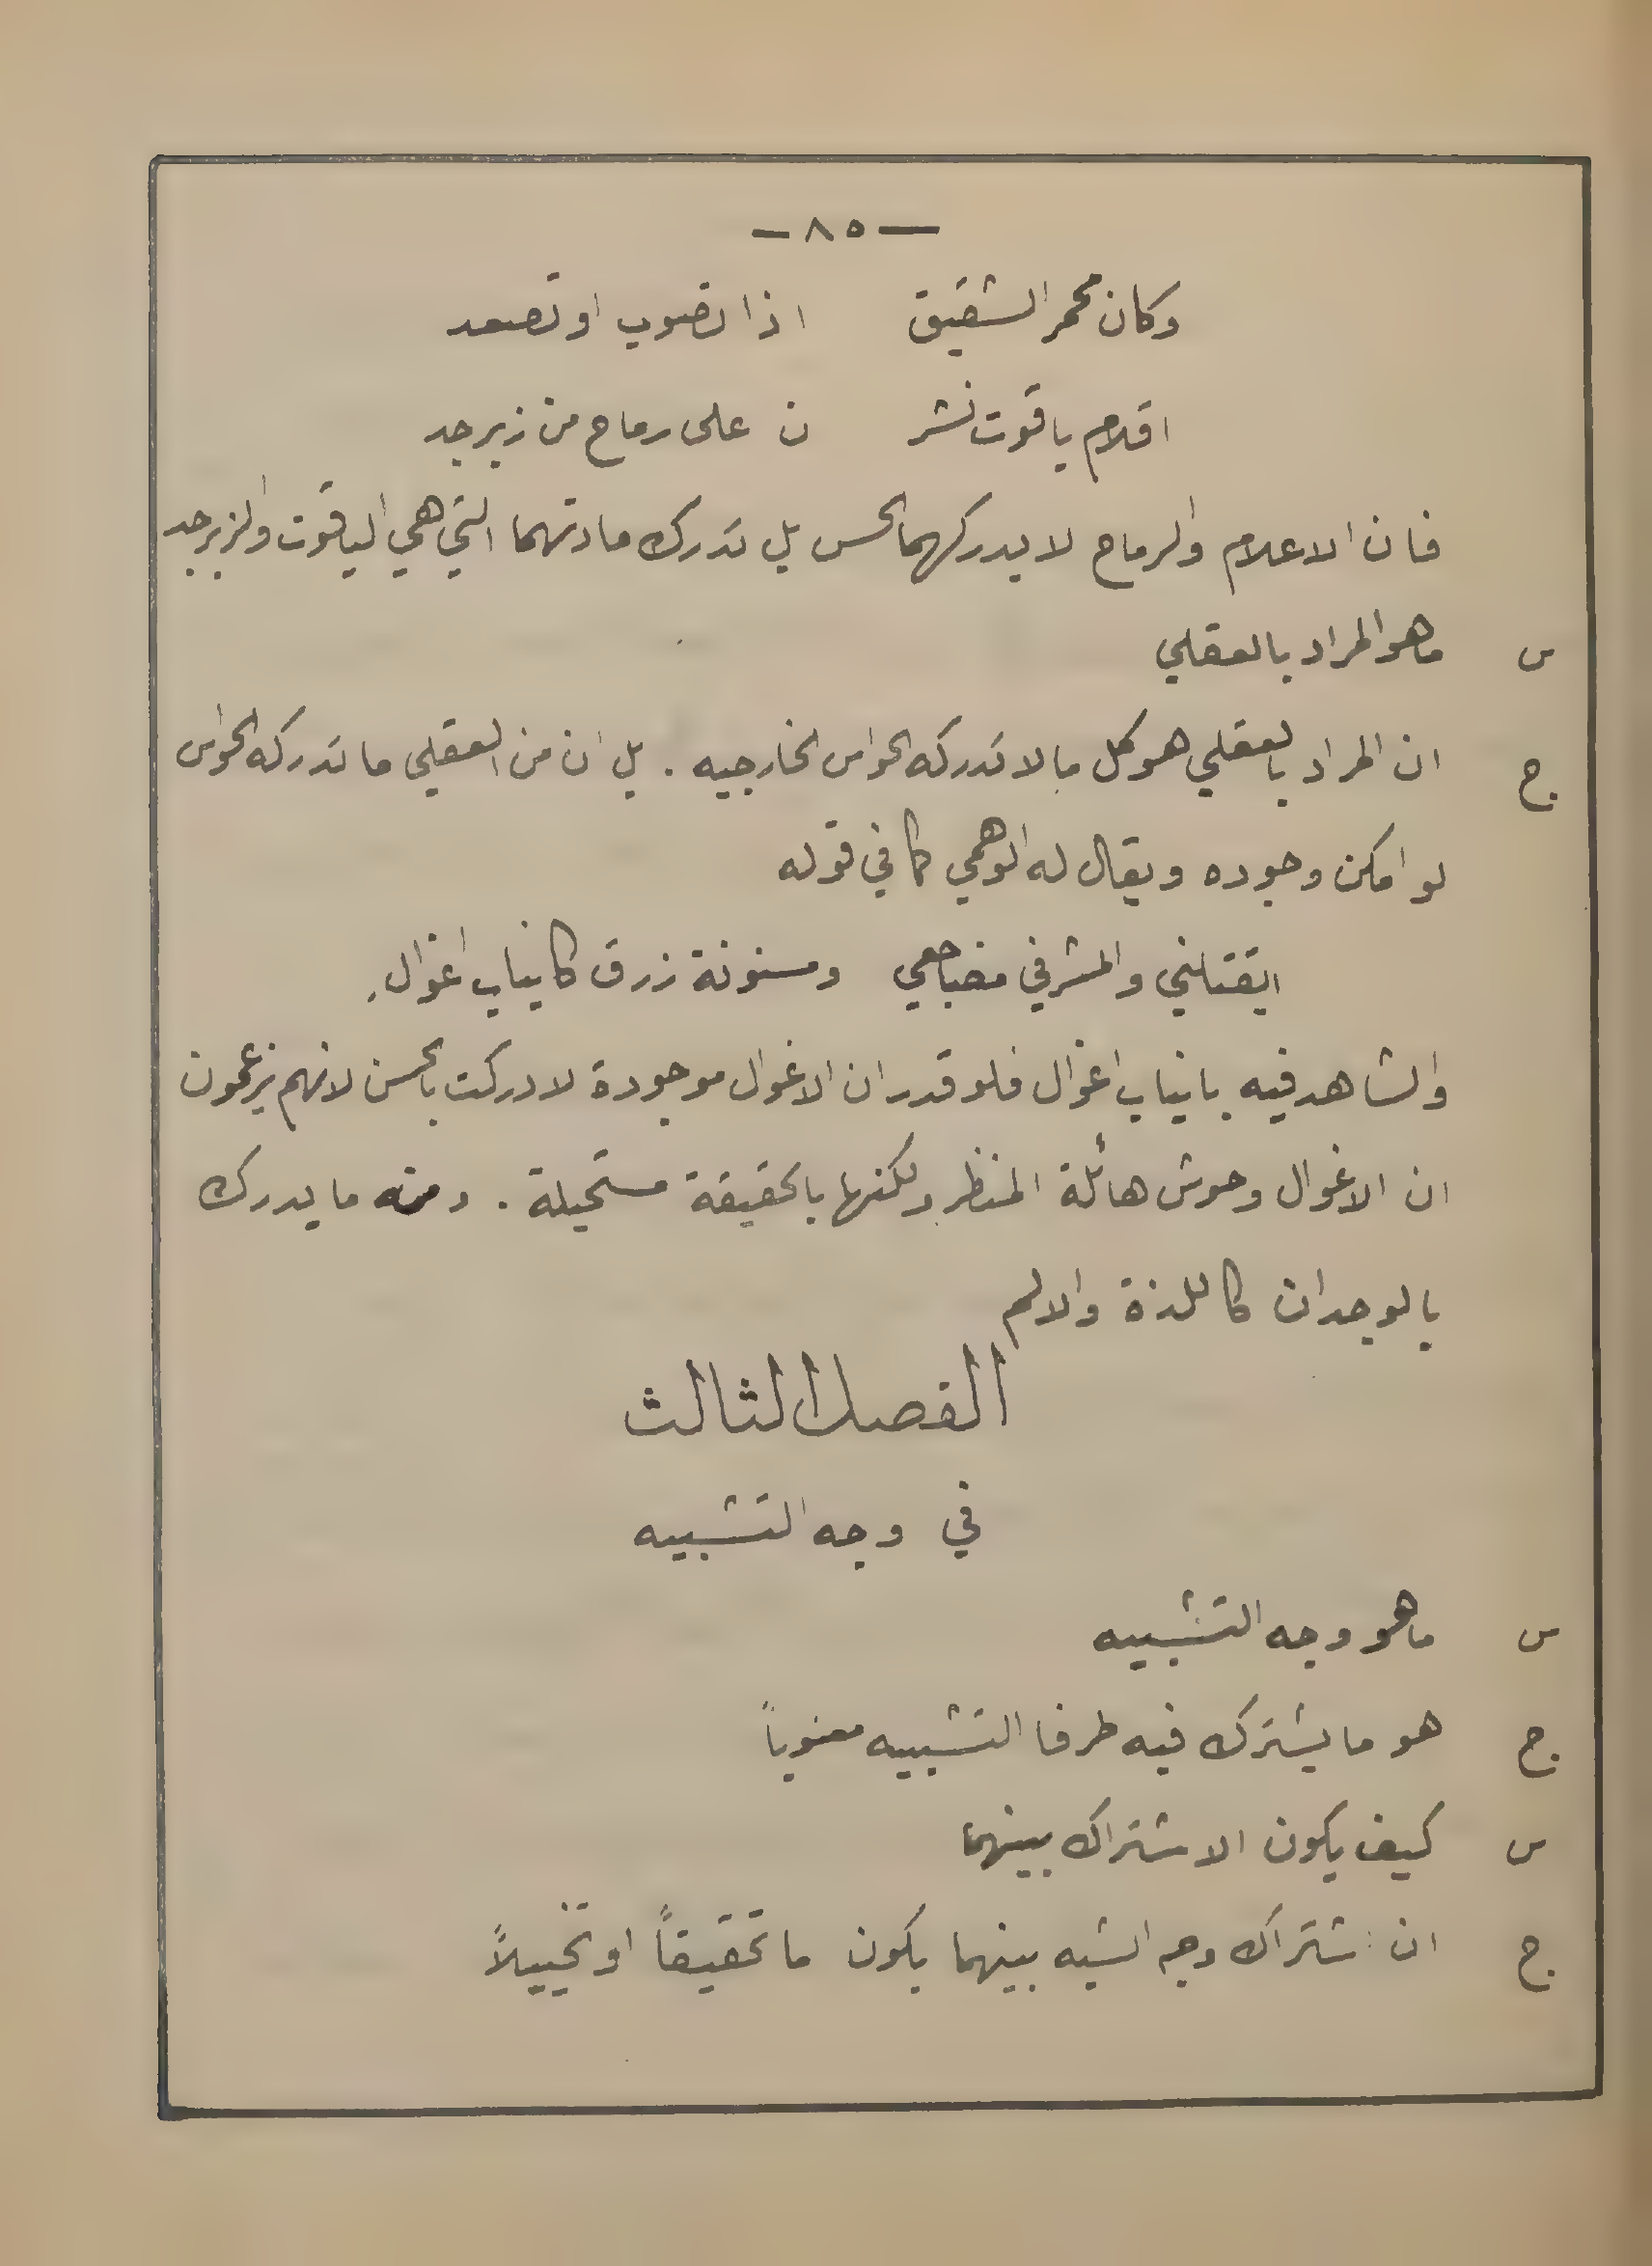 — ٨٥ —
وكان محمر الشقيق اذا تصوب او تصعد
اقلام ياقوت نشر ن على رماح من زبرجد
فان الاعلام والرماح لا يدركهما الحس بل تدرك مادتهما التي هي الياقوت والزبرجد
س ماهو المراد بالعقلي
ج ان المراد بالعقلي هو كل مالا تدركه الحواس الخارجيه . بل ان من العقلي ما تدركه الحواس
لو امكن وجوده ويقال له الوهمي كما في قوله
ايقتلني والمشرفي مضاجعي ومسنونة زرق كانياب اغوال
والشاهد فيه بانياب اغوال فلو قدر ان الاغوال موجودة لادركت بالحسن لانهم يزعمون
ان الاغوال وحوش هائلة المنظر ولكنها بالحقيقة مستحيلة . ومنه ما يدرك
بالوجدان كاللذة والالم
الفصل الثالث
في وجه التشبيه
س ماهو وجه التشبيه
ج هو ما يشترك فيه طرفا التشبيه معنوياً
س كيف يكون الاشتراك بينهما
ج ان اشتراك وجه الشبه بينهما يكون ما تحقيقاً او تخييلاً